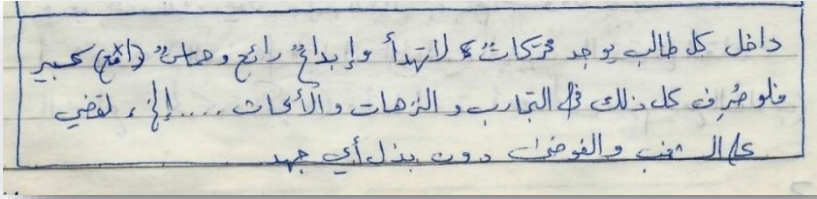 داخل كل طالب يوجد محركاتٌ لا تهدأ وإبداعٌ رائع وحماسٌ (دافع) كبير
فلو صُرِف كل ذلك في التجارب والنزهات والأبحاث .... إلخ، لقضي
على الشغب والفوضى دون بذل أي جهد